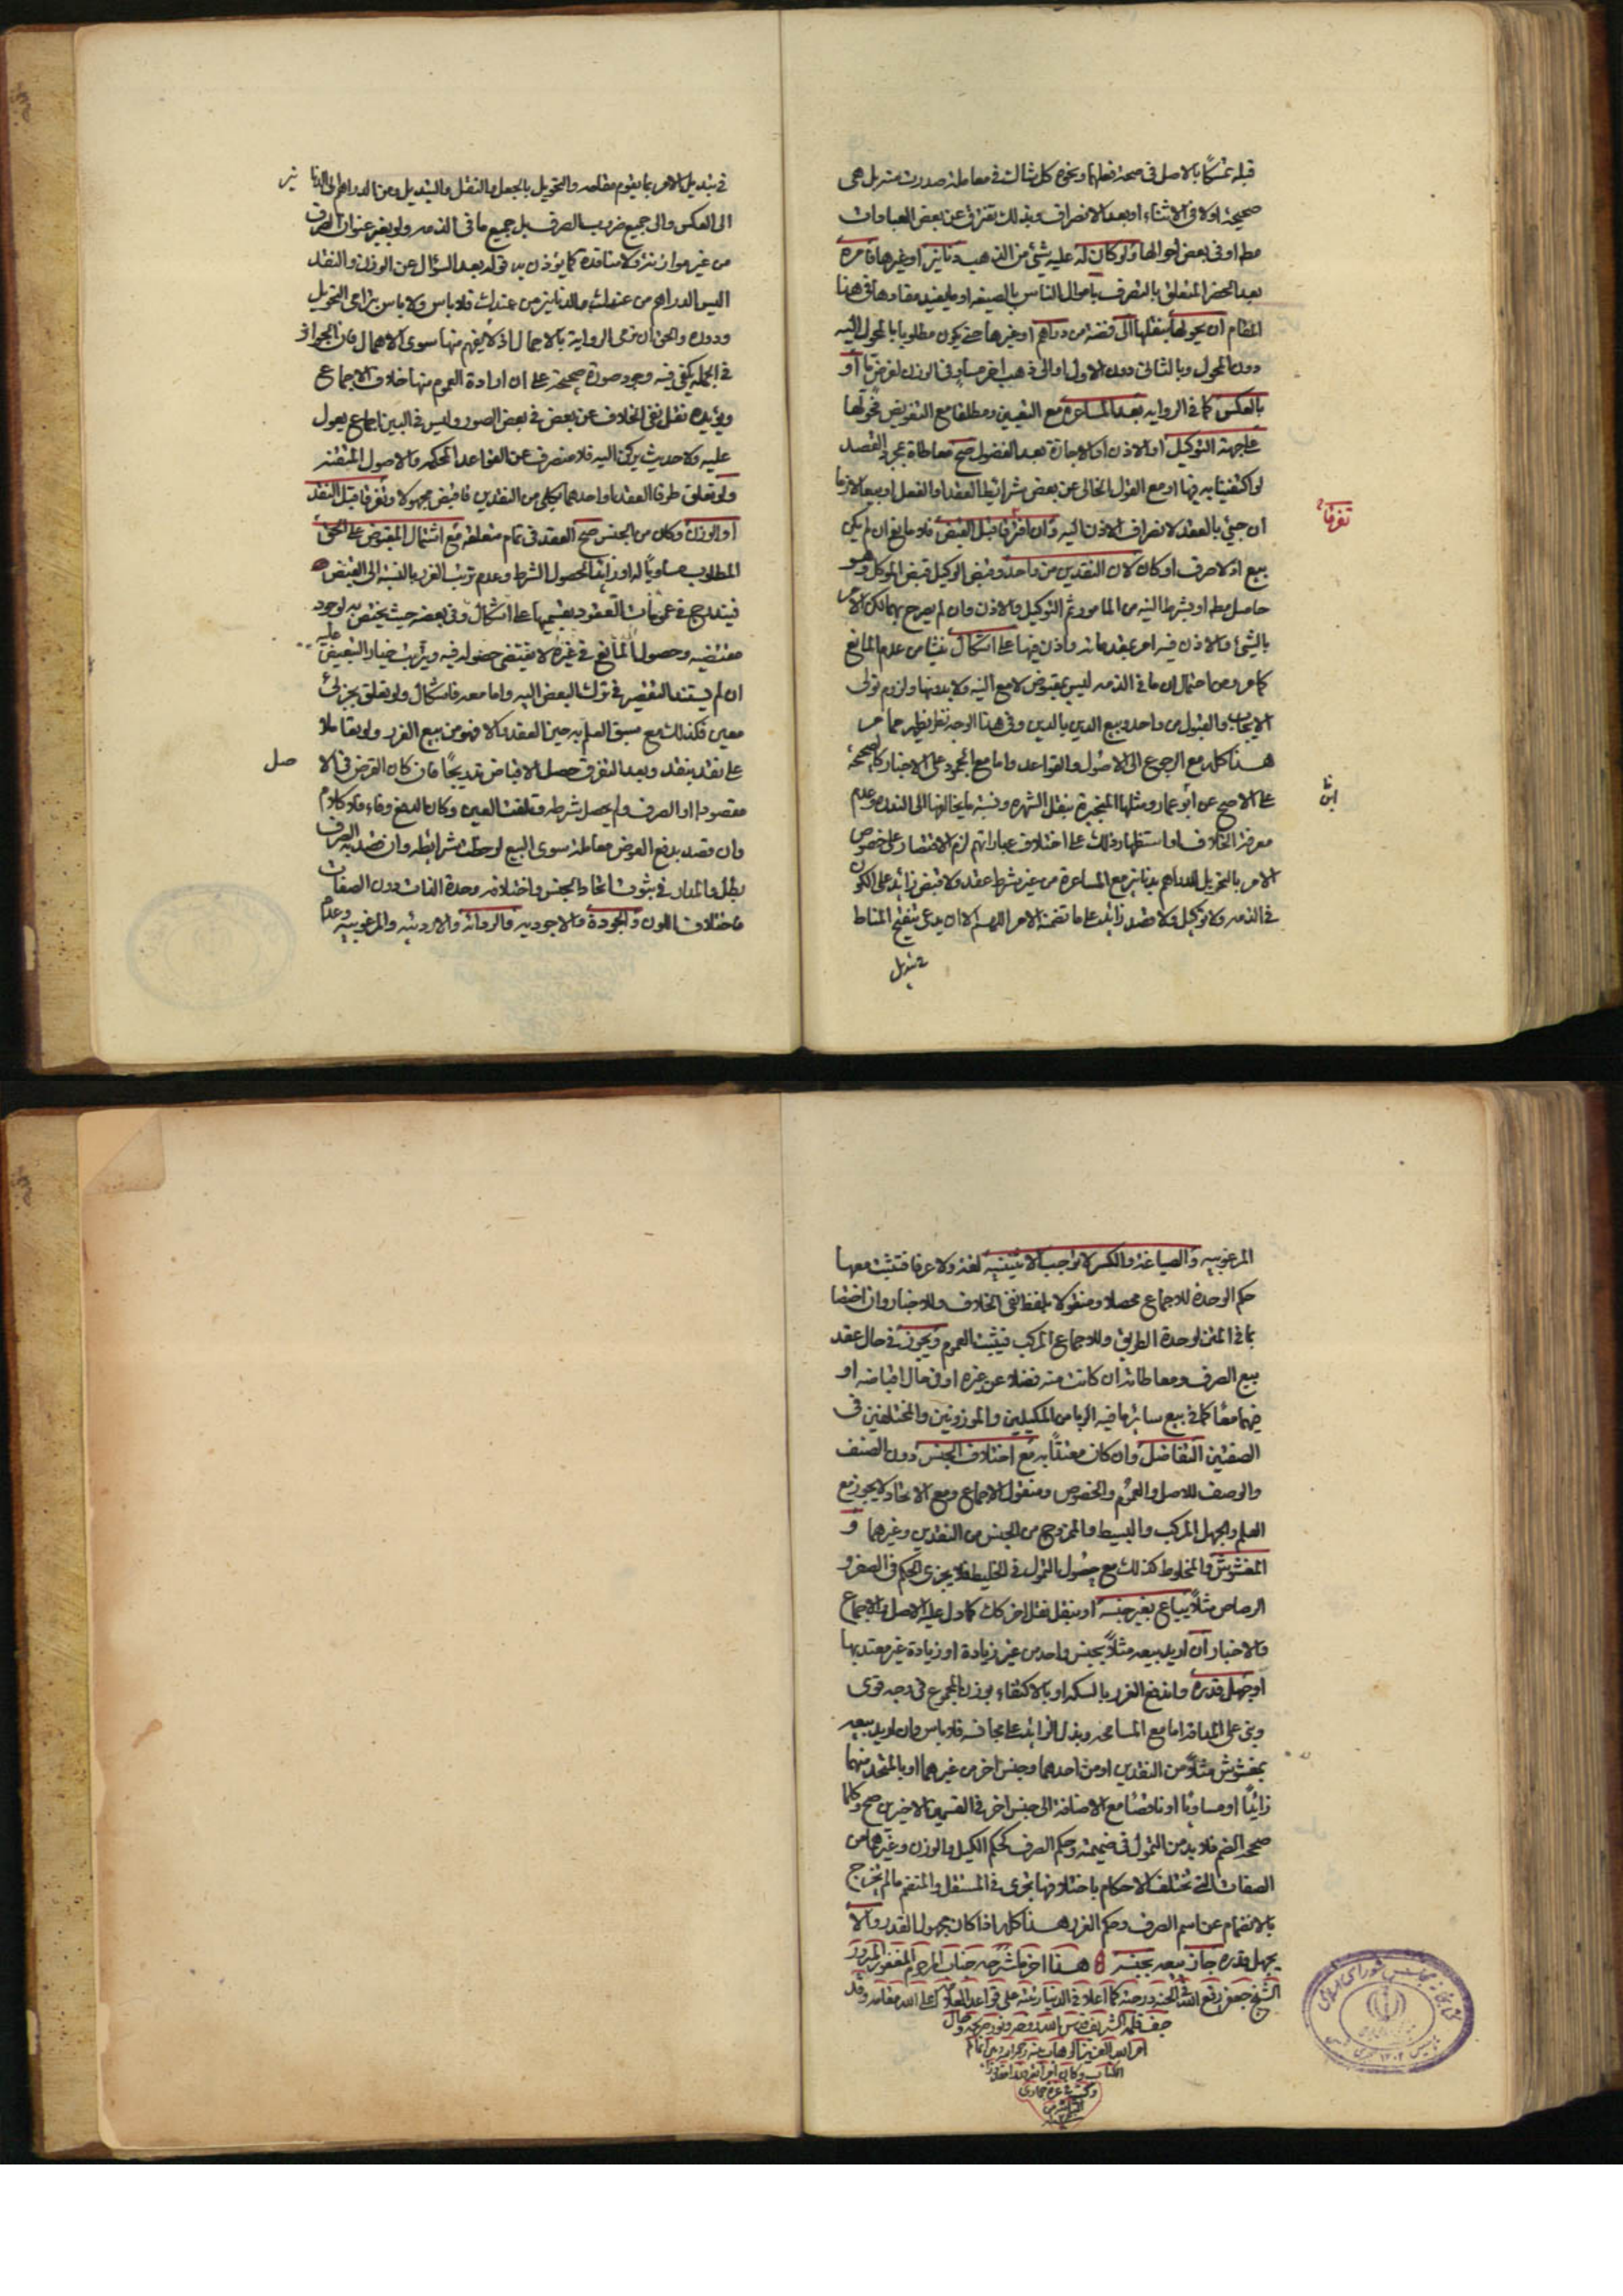 قبله تمسكًا بالاصل في صحة فعلها ونحوه كل شاك في معاملة صدرت منه بل هي
صحيحة اولا في الاثناء او بعد الانصراف وبذلك تفترق عن بعض العبادات
مطلقا وفي بعض احوالها ولو كان له عليه شئ من الذهب دنانير او غيرها فامره
بعد الحضر المتعلق بالتصرف باموال الناس بالصيغة او ما يفيد مفادها في هذا
المقام ان يحولها بنقلها الى فضة من دراهم او غيرها حتى يكون مطلوبا بالمحول اليه
دون المحول وبالثاني دون الاول او الى ذهب اخر مساو في الوزن لغرض ما او
بالعكس كما في الرواية بعد المساعرة مع التعيين ومطلقا مع التفويض فحولها
على جهة التوكيل او الاذن او الاجازة بعد الفضول صح معاطاة بمجرد القصد
لو اكتفينا به فيها او مع القول الخالي عن بعض شرائط العقد او الفعل او بيعا لازما
ان جئ بالعقد لانصراف الاذن اليه وان افترقا قبل القبض فلا مانع ان لم يكن
تفرقا
بيع اذ لا صرف او كان لان النقدين من واحد وقبض الوكيل قبض الموكل وهو
حاصل مطلقا او بشرط النية من المامور ثم التوكيل والاذن وان لم يصرح بهما لكن الامر
بالشئ والاذن فيه امر بمقدماته واذن فيها على اشكال ينشا من عدم المانع
كما مر ومن احتمال ان ما في الذمة ليس بمقبوض لا مع النية ولا بدونها ولزوم تولى
الايجاب والقبول من واحد وبيع الدين بالدين وفي هذا الوجه نظر يظهر مما مر
هذا كله مع الرجوع الى الاصول والقواعد واما مع المجمود على الاخبار كالصحيحة
على الاصح عن ابن عمار ومثلها المنجبرة بنقل الشهرة ونسبة ما يخالفها الى الندرة وعدم
ابن
معرفة الخلاف او استظهار ذلك على اختلاف عباراتهم لزم الاقتصار على خصوص
الامر بالتحويل للدراهم بدنانير مع المساعرة من غير شرط عقد ولا قبض زائد على الكون
في الذمة ولا توكيل ولا قصد زائد على ما تضمنه الامر اللهم الا ان يدعى تنقيح المناط
في تبديل
في تبديل الامر بما يقوم مقامه والتحويل بالجعل والنقل والتبديل ومن الدراهم الى الدنا نير
الى العكس والى جميع ضروب الصرف بل جميع ما في الذمة ولو بغير عنوان الصرف
من غير موازنة ولا مناقدة كما يؤذن به قوله بعد السؤال عن الوزن والنقد
اليس الدراهم من عندك والدنانير من عندك فلا باس ولا باس بتراخى التحويل
ودوره والحق ان نرمى الرواية بالاجمال اذ لا يفهم منها سوى الاهمال فان الجواز
في الجملة يكفي فيه وجود صورة صحيحة على ان ارادة العموم منها خلاف الاجماع
ويؤيده نقل نفي الخلاف عن بعض في بعض الصور وليس في البين اجماع يعول
عليه ولا حديث يركن اليه فلا منصرف عن القواعد المحكمة والاصول المتقنة
ولو تعلق طرفا العقد او احدهما بكلى من النقدين فاقبض مجهولا وتفرقا قبل النقد
او الوزن وكان من الجنس صح العقد في تمام متعلقه مع اشتمال المقبوض على الحق
المطلوب مساويًا له او زائدًا لحصول الشرط وعدم ترتب الغرر بالنسبة الى القبض
فيندرج في عمومات العقود بقسميها على اشكال وفي بعضه حيث يختص به لوجود
مقتضيه وحصول المانع في غيره لا يقتضى حصوله فيه ويترتب خيار التبعيض عليه
ان لم يستند التقصير في ترك البعض اليه واما معه فاشكال ولو تعلق بجزئى
معين فكذلك مع سبق العلم به حين العقد والا فهو من بيع الغرر ولو تقاملا
على نقد بنقد وبعد التفرق حصل الاقباض تدريجًا فان كان القرض في الا صل
مقصودا او الصرف ولم يحصل شرطه وتلفت العين وكان الدفع وفاء فلا كلام
وان قصد بدفع العوض معاملة سوى البيع لوحظت شرائطه وان قصد به الصرف
بطل والمدار في ثبوت اتحاد الجنس واختلافه وحدة الذات دون الصفات
فاختلاف اللون والجودة والاجودية والرداءة والاردئية والمرغوبية وعدم
المرغوبية والصياغة والكسر لا توجب الاثنينية لغة ولا عرفا فتثبت معها
حكم الوحدة للاجماع محصلا ومنقولا بلفظ نفي الخلاف وللاخبار وان اختصا
بما في المتن لوحدة الطريق وللاجماع المركب فيثبت العموم ويجوز في حال عقد
بيع الصرف ومعاطاته ان كانت منه فضلا عن غيره او في حال اقباضه او
فيهما معًا كما في بيع سائر ما فيه الربا من المكيلين والموزونين والمختلفين في
الصفتين التفاضل وان كان معتدًا به مع اختلاف الجنس دون الصنف
والوصف للاصل والعموم والخصوص ومنقول الاجماع ومع الاتحاد لا يجوز مع
العلم والجهل المركب والبسيط والممزوج من الجنس من النقدين وغيرهما و
المغشوش والمخلوط كذلك مع حصول التمول في الخليط فلا يجزى الحكم في الصفر و
الرصاص مثلاً يباع بغير جنسه او بنقل اخر كان كما دل عليه الاصل والاجماع
والاخبار ان اريد بيعه مثلاً بجنس واحد من غير زيادة او زيادة غير معتد بها
او جهل قدره واندفع الغرر بالسكة او بالاكتفاء بوزن المجموع في وجه قوى
وبنى على المداقة اما مع المسامحة وبذل الزائد على مجانسه فلا باس وان اريد بيعه
بمغشوش مثلاً من النقدين او من احدهما وجنس اخر من غيرهما او بالمتحد منهما
زائدًا او مساويًا او ناقصًا مع الاضافة الى جنس اخر في القسمين الاخيرين صح وكلما
صححه الضم فلا بد من التمول في ضميمته وحكم الصرف كحكم الكيل والوزن وغيرهما من
الصفات التي تختلف الاحكام باختلافها يجرى في المستقل والمنضم ما لم يخرج
بالانضمام عن اسم الصرف وحكم الغرر هذا كله اذا كان مجهول القدر والا
يجهل قدره جاز بيعه بجنسه هذا اخر ما شرحه جناب المرحوم المغفور المبرور
الشيخ جعفر رفع الله في الجنة درجته كما اعلا في الدنيا رتبته على قواعد العلامة اعلى الله مقامه وقد
جف قلمه الشريف قدس الله روحه ونور ضريحه وحال
امر الله العزيز الوهاب بينه وبين اتمام
الكتاب وكان امر الله قدرا مقدورا
وكتب في غرة جمادى